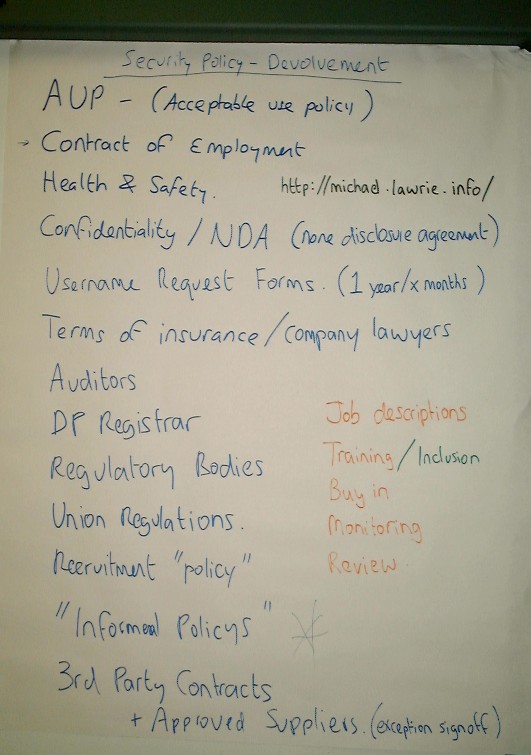 Security Policy - Devolvement
AUP - (Acceptable use policy)
→ Contract of Employment
Health & Safety. http://michael.lawrie.info/
Confidentiality / NDA (none disclosure agreement)
Username Request Forms. (1 year/x months)
Terms of insurance/company lawyers
Auditors
DP Registrar
Regulatory Bodies
Union Regulations.
Recruitment "policy"
"Informal Policys"
3rd Party Contracts
+ Approved Suppliers. (exception signoff)
Job descriptions
Training/Inclusion
Buy in
Monitoring
Review.